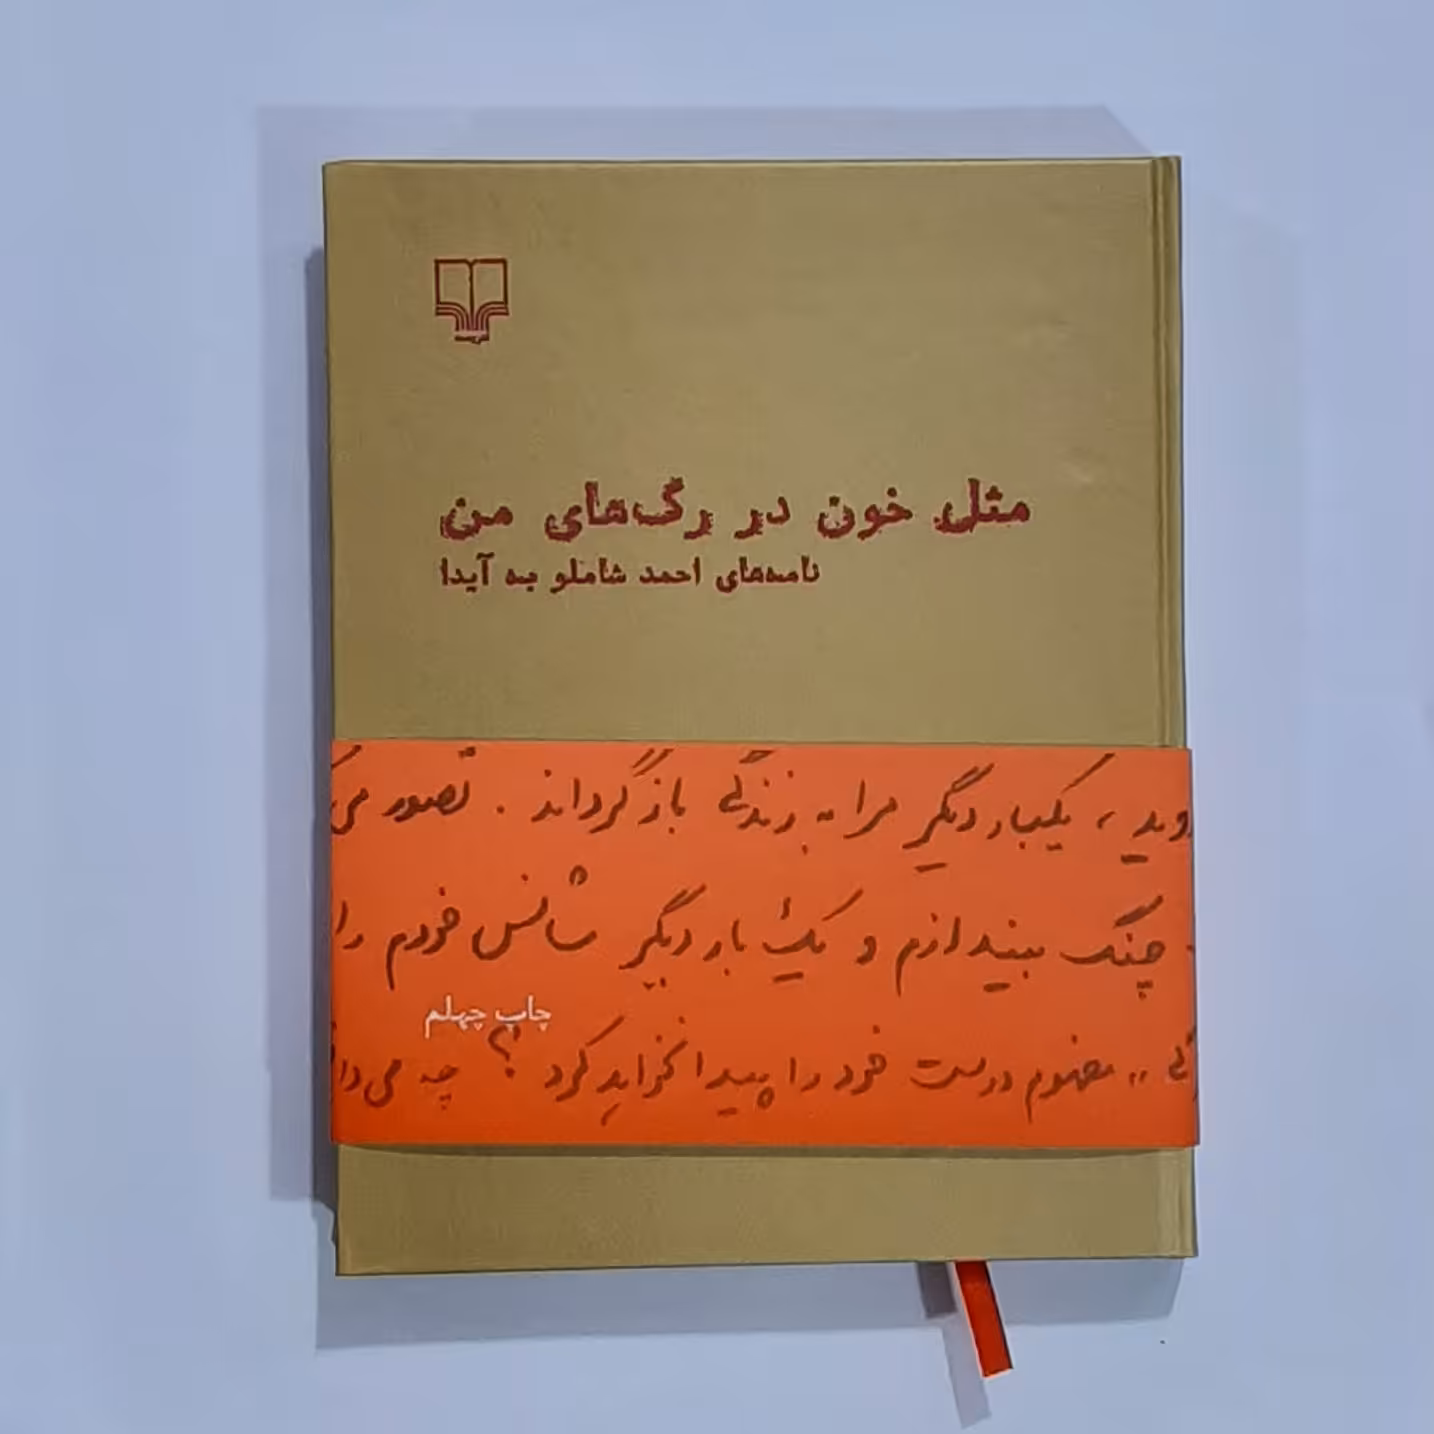 چشمه
مثل خون در رگ‌های من
نامه‌های احمد شاملو به آیدا
یکبار دیگر مرا به زندگی بازگرداند . تصور می
چنگ بیندازم و یک بار دیگر شانس خودم را
چاپ چهلم
مفهوم درست خود را پیدا نخواهد کرد ؟ چه می